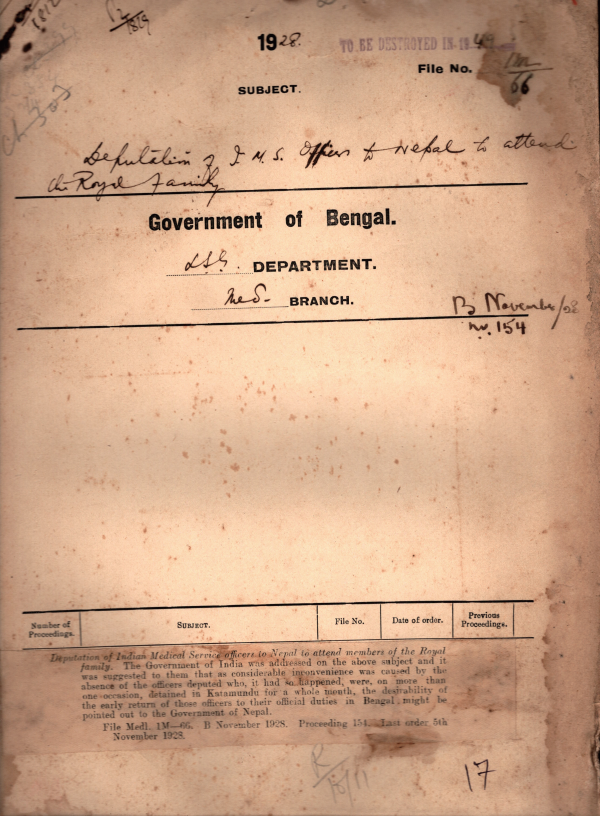 R2/1819
1928.
TO BE DESTROYED IN 19
File No. 1M/66
SUBJECT.
Deputation of I. M. S. Officers to Nepal to attend
the Royal Family
Government of Bengal.
LSG. DEPARTMENT.
Med. BRANCH.
B November/28
no. 154
Number of Proceedings.
SUBJECT.
File No.
Date of order.
Previous Proceedings.
Deputation of Indian Medical Service officers to Nepal to attend members of the Royal
family. The Government of India was addressed on the above subject and it
was suggested to them that as considerable inconvenience was caused by the
absence of the officers deputed who, it had so happened, were, on more than
one occasion, detained in Katamundu for a whole month, the desirability of
the early return of those officers to their official duties in Bengal might be
pointed out to the Government of Nepal.
File Medl. 1M—66. B November 1928. Proceeding 154. Last order 5th
November 1928.
17